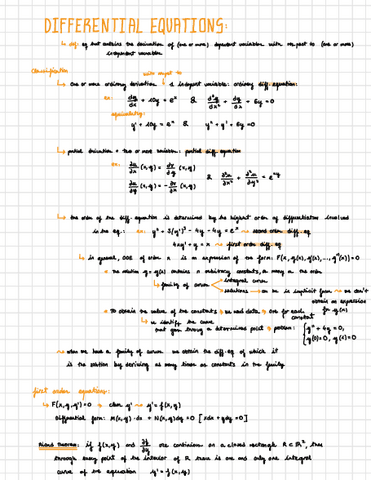 DIFFERENTIAL EQUATIONS:
↳ def. eq that contains the derivation of (one or more) dependent variables with respect to (one or more)
independent variables
Classification
with respect to
↳ one or more ordinary derivation ↓ 1 indepent variable: ordinary diff. equation:
ex: dy/dx + 10y = eˣ & d²y/dx² + dy/dx + 6y = 0
equivalently:
y' + 10y = eˣ & y'' + y' + 6y = 0
↳ partial derivation + two or more variables: partial diff equation
ex: ∂u/∂x (x,y) = ∂v/∂y (x,y)
∂u/∂y (x,y) = - ∂v/∂x (x,y) &
↳ the order of the diff. equation is determined by the highest order of differentiation involved
in the eq.: ex: y'' + 3(y')³ - 4y = eˣ → second order diff. eq
4xy' + y = x → first order diff. eq
↳ in general, ODE of order n is an expression of the form: F(x, y(x), y'(x), ..., yⁿ(x)) = 0
the solution y = y(x) contains n arbitrary constants, as many as the order
↳ family of curves
integral curve
solutions → in implicit form → we don't
obtain an expression
for y(x)
To obtain the value of the constants → we need data → one for each
constant
↳ we identify the curve
that goes through a determined point
problem: y'' + 4y = 0,
when we have a family of curves we obtain the diff. eq of which it
is the solution by deriving as many times as constants in the family
first order equations:
↳ F(x, y, y') = 0 → clear y' → y' = f(x,y)
Differential form: M(x,y)·dx + N(x,y)dy = 0 [xdx + ydy = 0]
theorem: if f(x,y) and ∂f/∂y are continuous on a closed rectangle R ⊂ ℝ², then
through every point of the interior of R there is one and only one integral
curve of the equation y' = f(x,y)